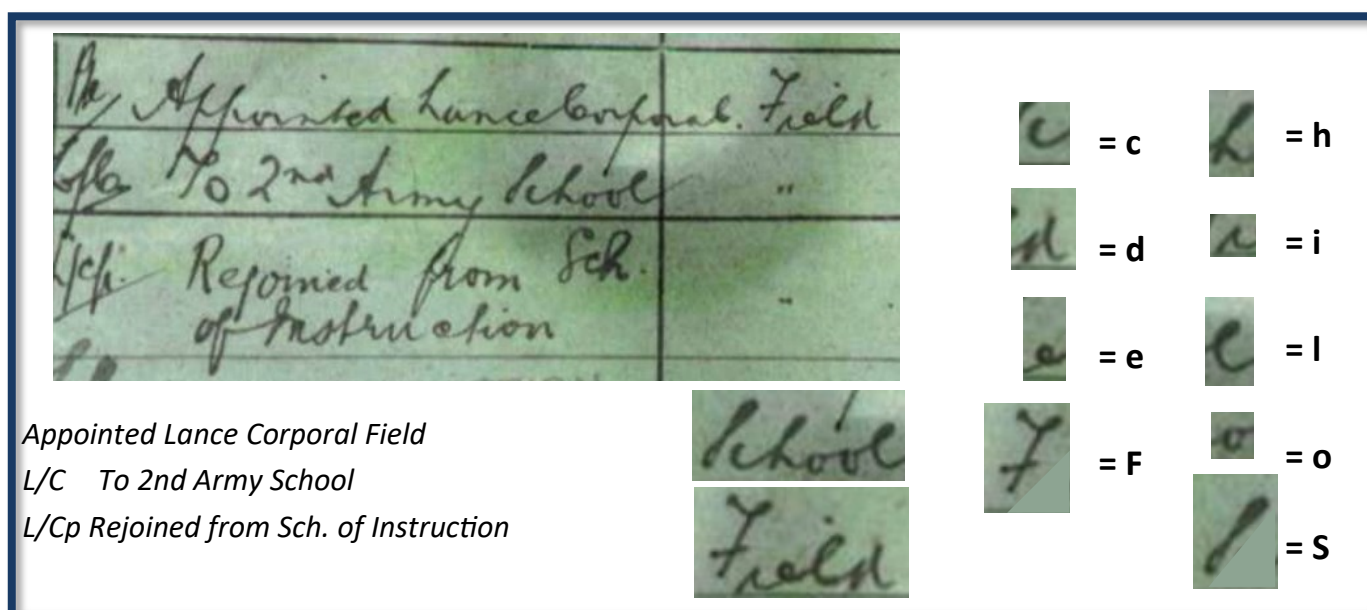 Appointed Lance Corporal. Field
To 2nd Army School "
Rejoined from Sch. "
of Instruction
Appointed Lance Corporal Field
L/C To 2nd Army School
L/Cp Rejoined from Sch. of Instruction
School
Field
c = c
d = d
e = e
F = F
h = h
i = i
l = l
o = o
S = S